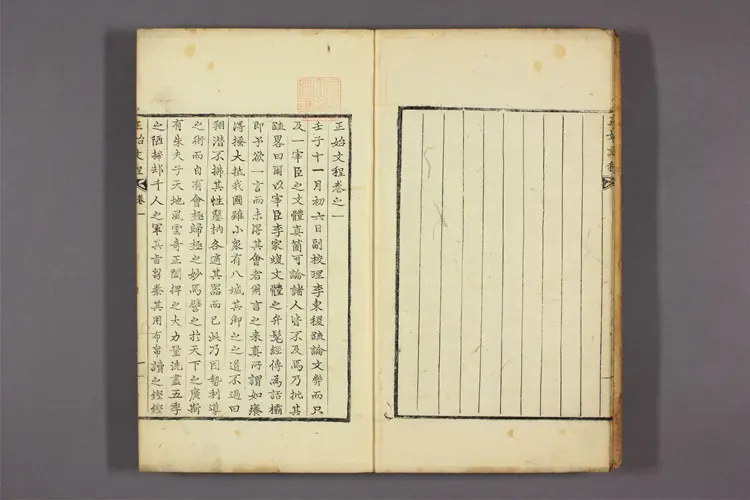 正始文程卷之一
壬子十一月初六日副校理李東稷䟽論文弊而只
及一宰臣之文體真箇可論諸人皆不及焉乃批其
䟽畧曰爾以宰臣李家煥文體之弁髦經傳爲話欛
即予欲一言而未得其會者爾言之來真所謂如癢
得搔大抵我國雖小衆有八域其御之之道不過曰
翔潜不拂其性鑿枘各適其器而已此乃因勢利導
之術而自有會極歸極之妙焉譬之於天下之廣斯
有朱夫子天地風雲奇正闔捭之大力量洗盡五季
之陋掃却千人之軍其旨芻豢其用布帛讀之鏗鏗
正始文程 卷一